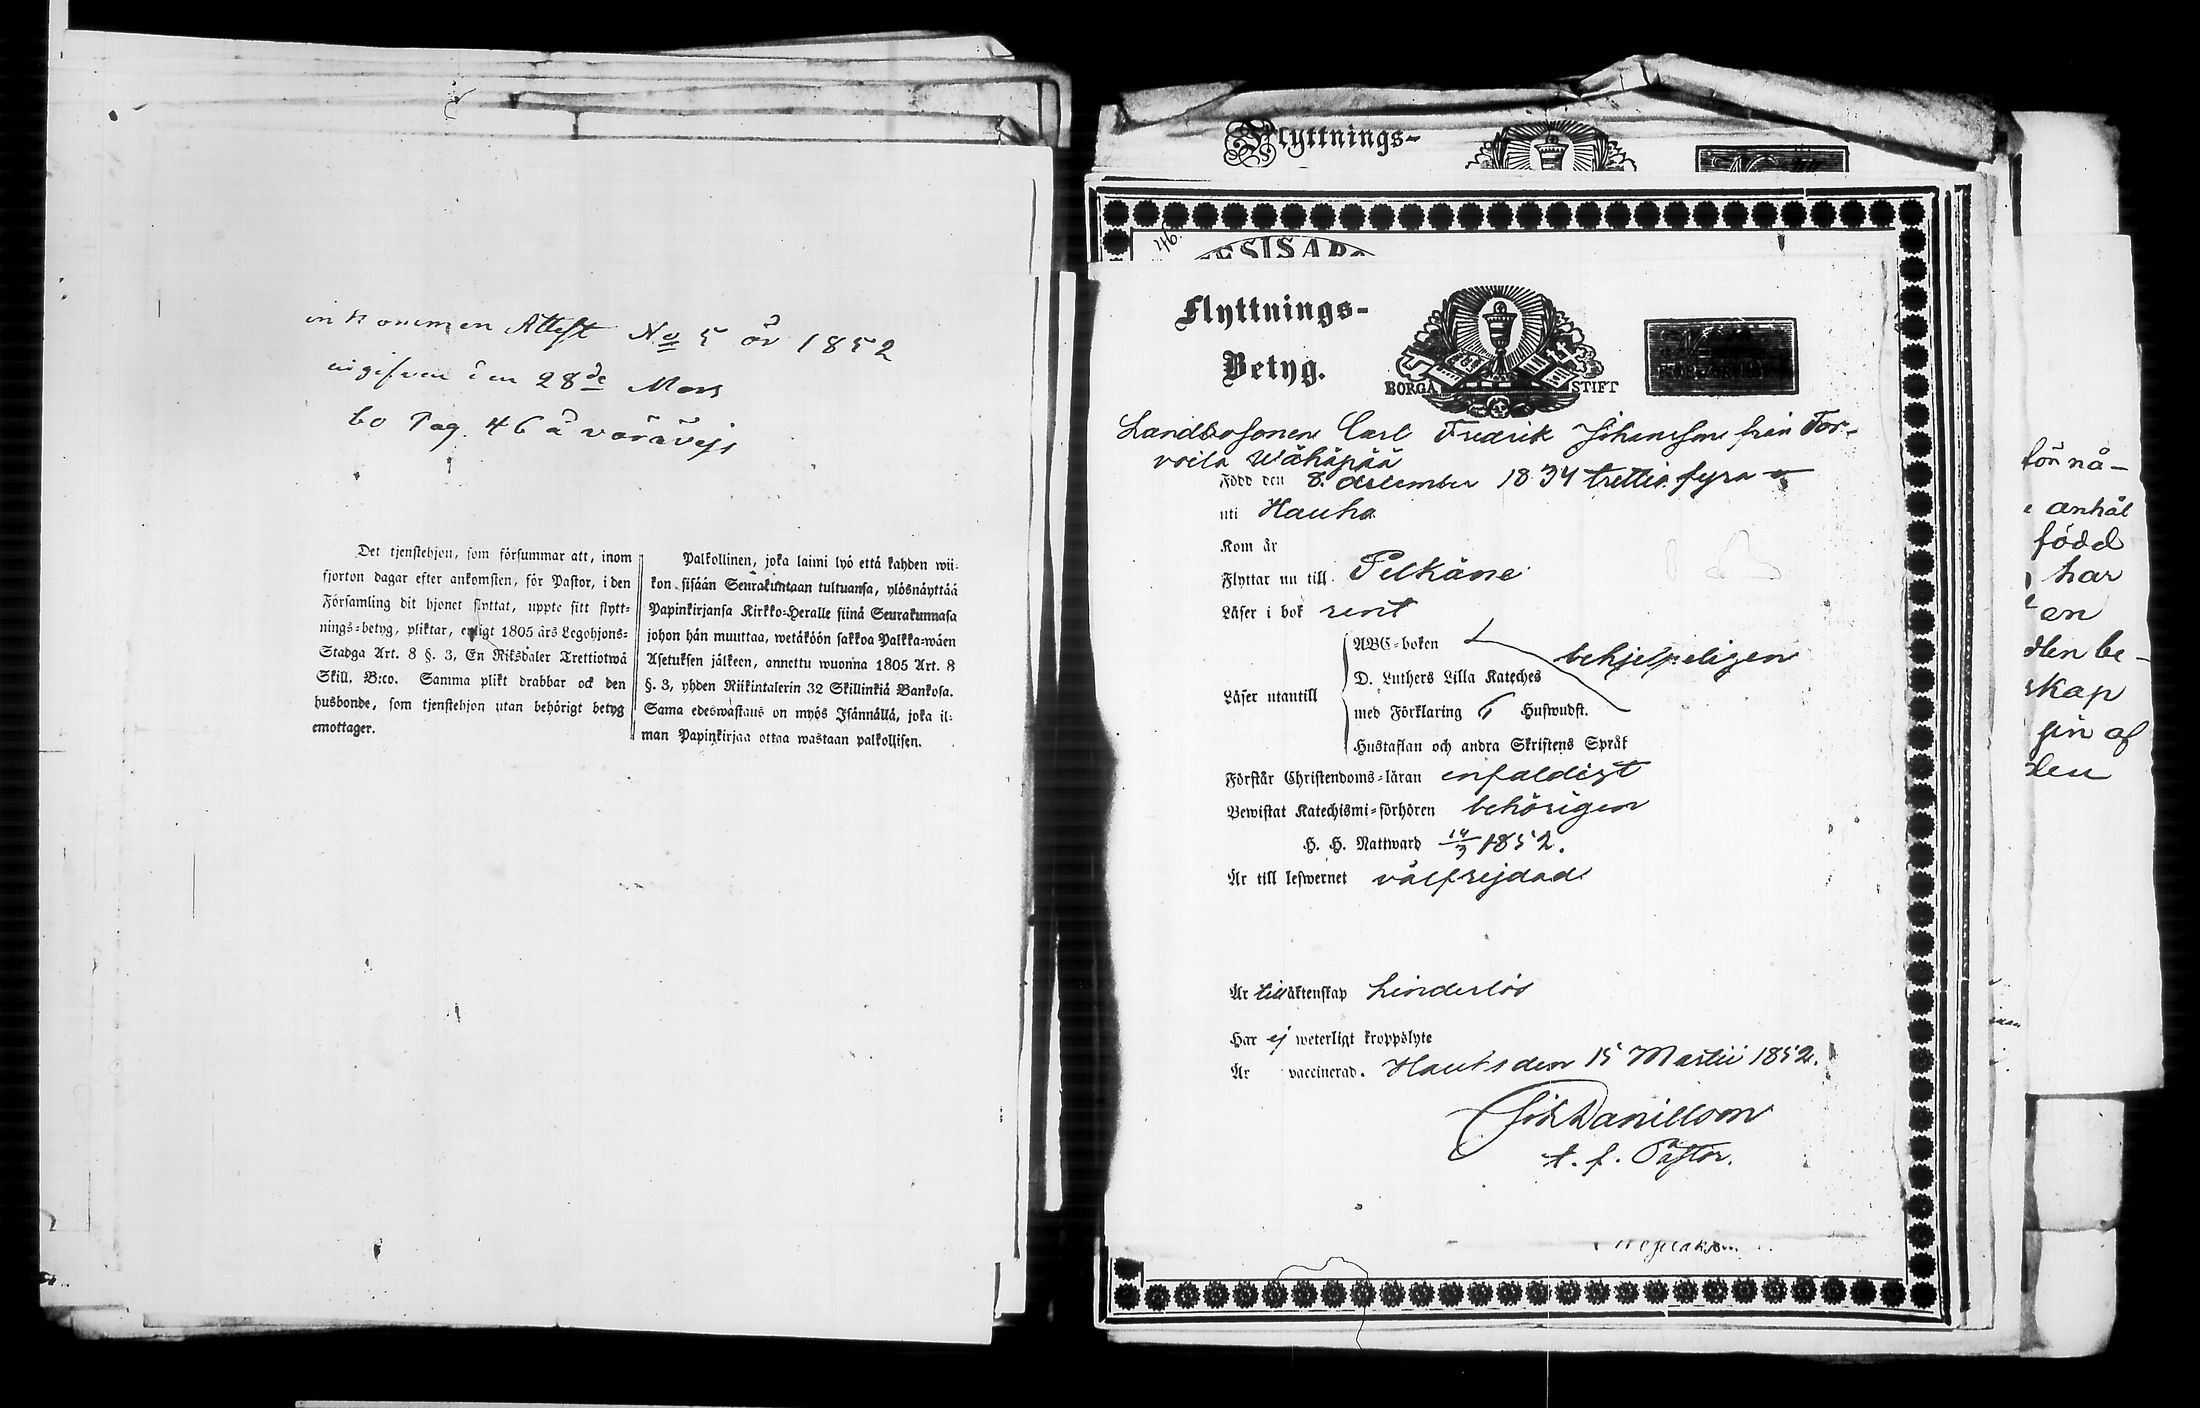 inkommen Attest No 5 år 1852
ingifven den 28de Mars
bo Pag. 46 å

Det tjenstehjon, som försummar att, inom
fjorton dagar efter ankomsten, för Pastor, i den
Församling dit hjonet flyttat, uppte sitt flytt-
nings-betyg, pliktar, enligt 1805 års Legohjons-
Stadga Art. 8 §. 3, En Riksdaler Trettiotwå
Skill. B:co. Samma plikt drabbar ock den
husbonde, som tjenstehjon utan behörigt betyg
emottager.

Palkollinen, joka laimi lyö että kahden wii-
kon sisään Seurakuntaan tultuansa, ylösnäyttää
Papinkirjansa Kirkko-Heralle siinä Seurakunnasa
johon hän muuttaa, wetäköön sakkoa Palkka-wäen
Asetuksen jälkeen, annettu wuonna 1805 Art. 8
§. 3, yhden Riikintalerin 32 Skillinkiä Bankosa.
Sama edeswastaus on myös Isännällä, joka il-
man Papinkirjaa ottaa wastaan palkollisen.

Flyttnings-
46.
Flyttnings-
Betyg.
BORGÅ STIFT
Landbosonen Carl Fredrik Johansson från Tor-
voila Wähäpää
Född den 8. december 1834 trettio fyra
uti Hauho
Kom år
Flyttar nu till Pelkäne
Läser i bok rent
Läser utantill
ABC-boken
behjelpeligen
D. Luthers Lilla Kateches
med Förklaring Huswudst.
Hustaflan och andra Skriftens Språk
Förstår Christendoms-läran enfaldigt
Bewistat Katechismi-förhören behörigen
H. H. Nattward 14/3 1852.
Är till lefwernet välfrejdad
Är till äktenskap hinderlös
Har ej weterligt kroppslyte
Är vaccinerad. Hauho den 15 Martii 1852.
Joh Danielson
t. f. Pastor.

för nå-
anhål
född
har
en
dlen be-
skap
sin af
den